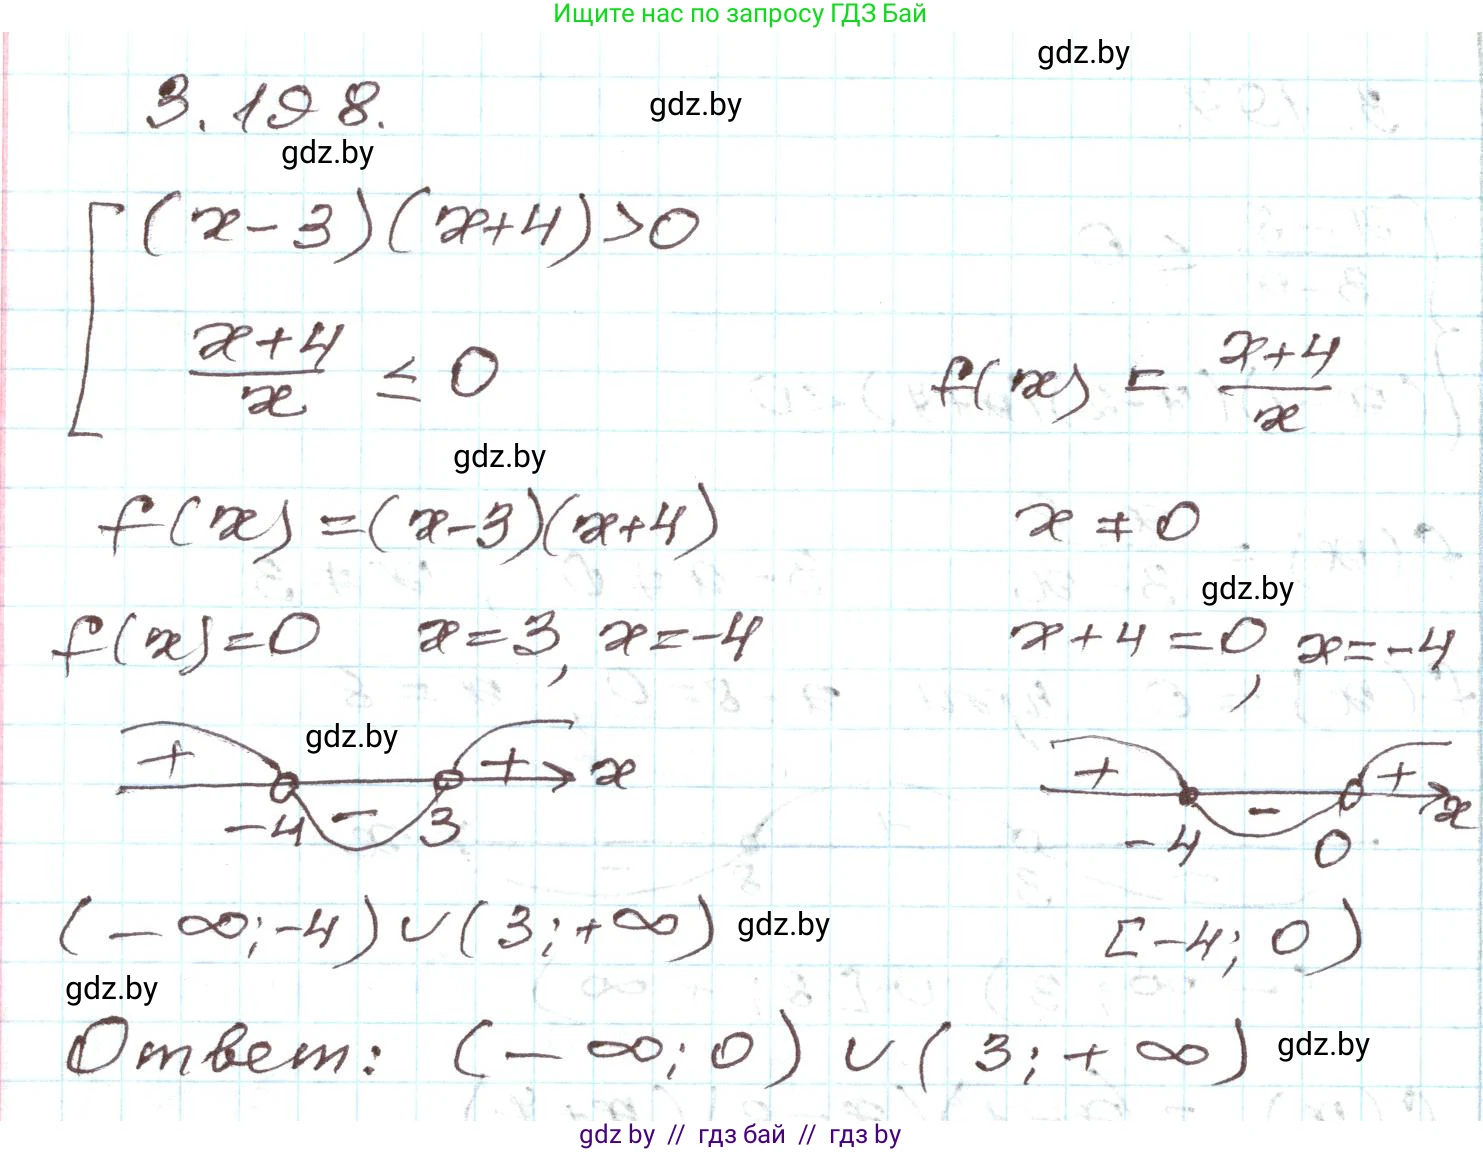 Ищите нас по запросу ГДЗ Бай
gdz.by
3.198.
gdz.by
gdz.by
(x-3)(x+4)>0
x+4
x
≤ 0
f(x) = x+4
x
gdz.by
f(x) =(x-3)(x+4)
x ≠ 0
gdz.by
f(x)=0 x=3, x=-4
x+4=0, x=-4
gdz.by
+ - + x
-4 3
+ - + x
-4 0
(-∞;-4)∪(3;+∞)
gdz.by
[-4; 0)
gdz.by
Ответ: (-∞; 0) ∪ (3; +∞)
gdz.by
gdz.by // гдз бай // гдз by